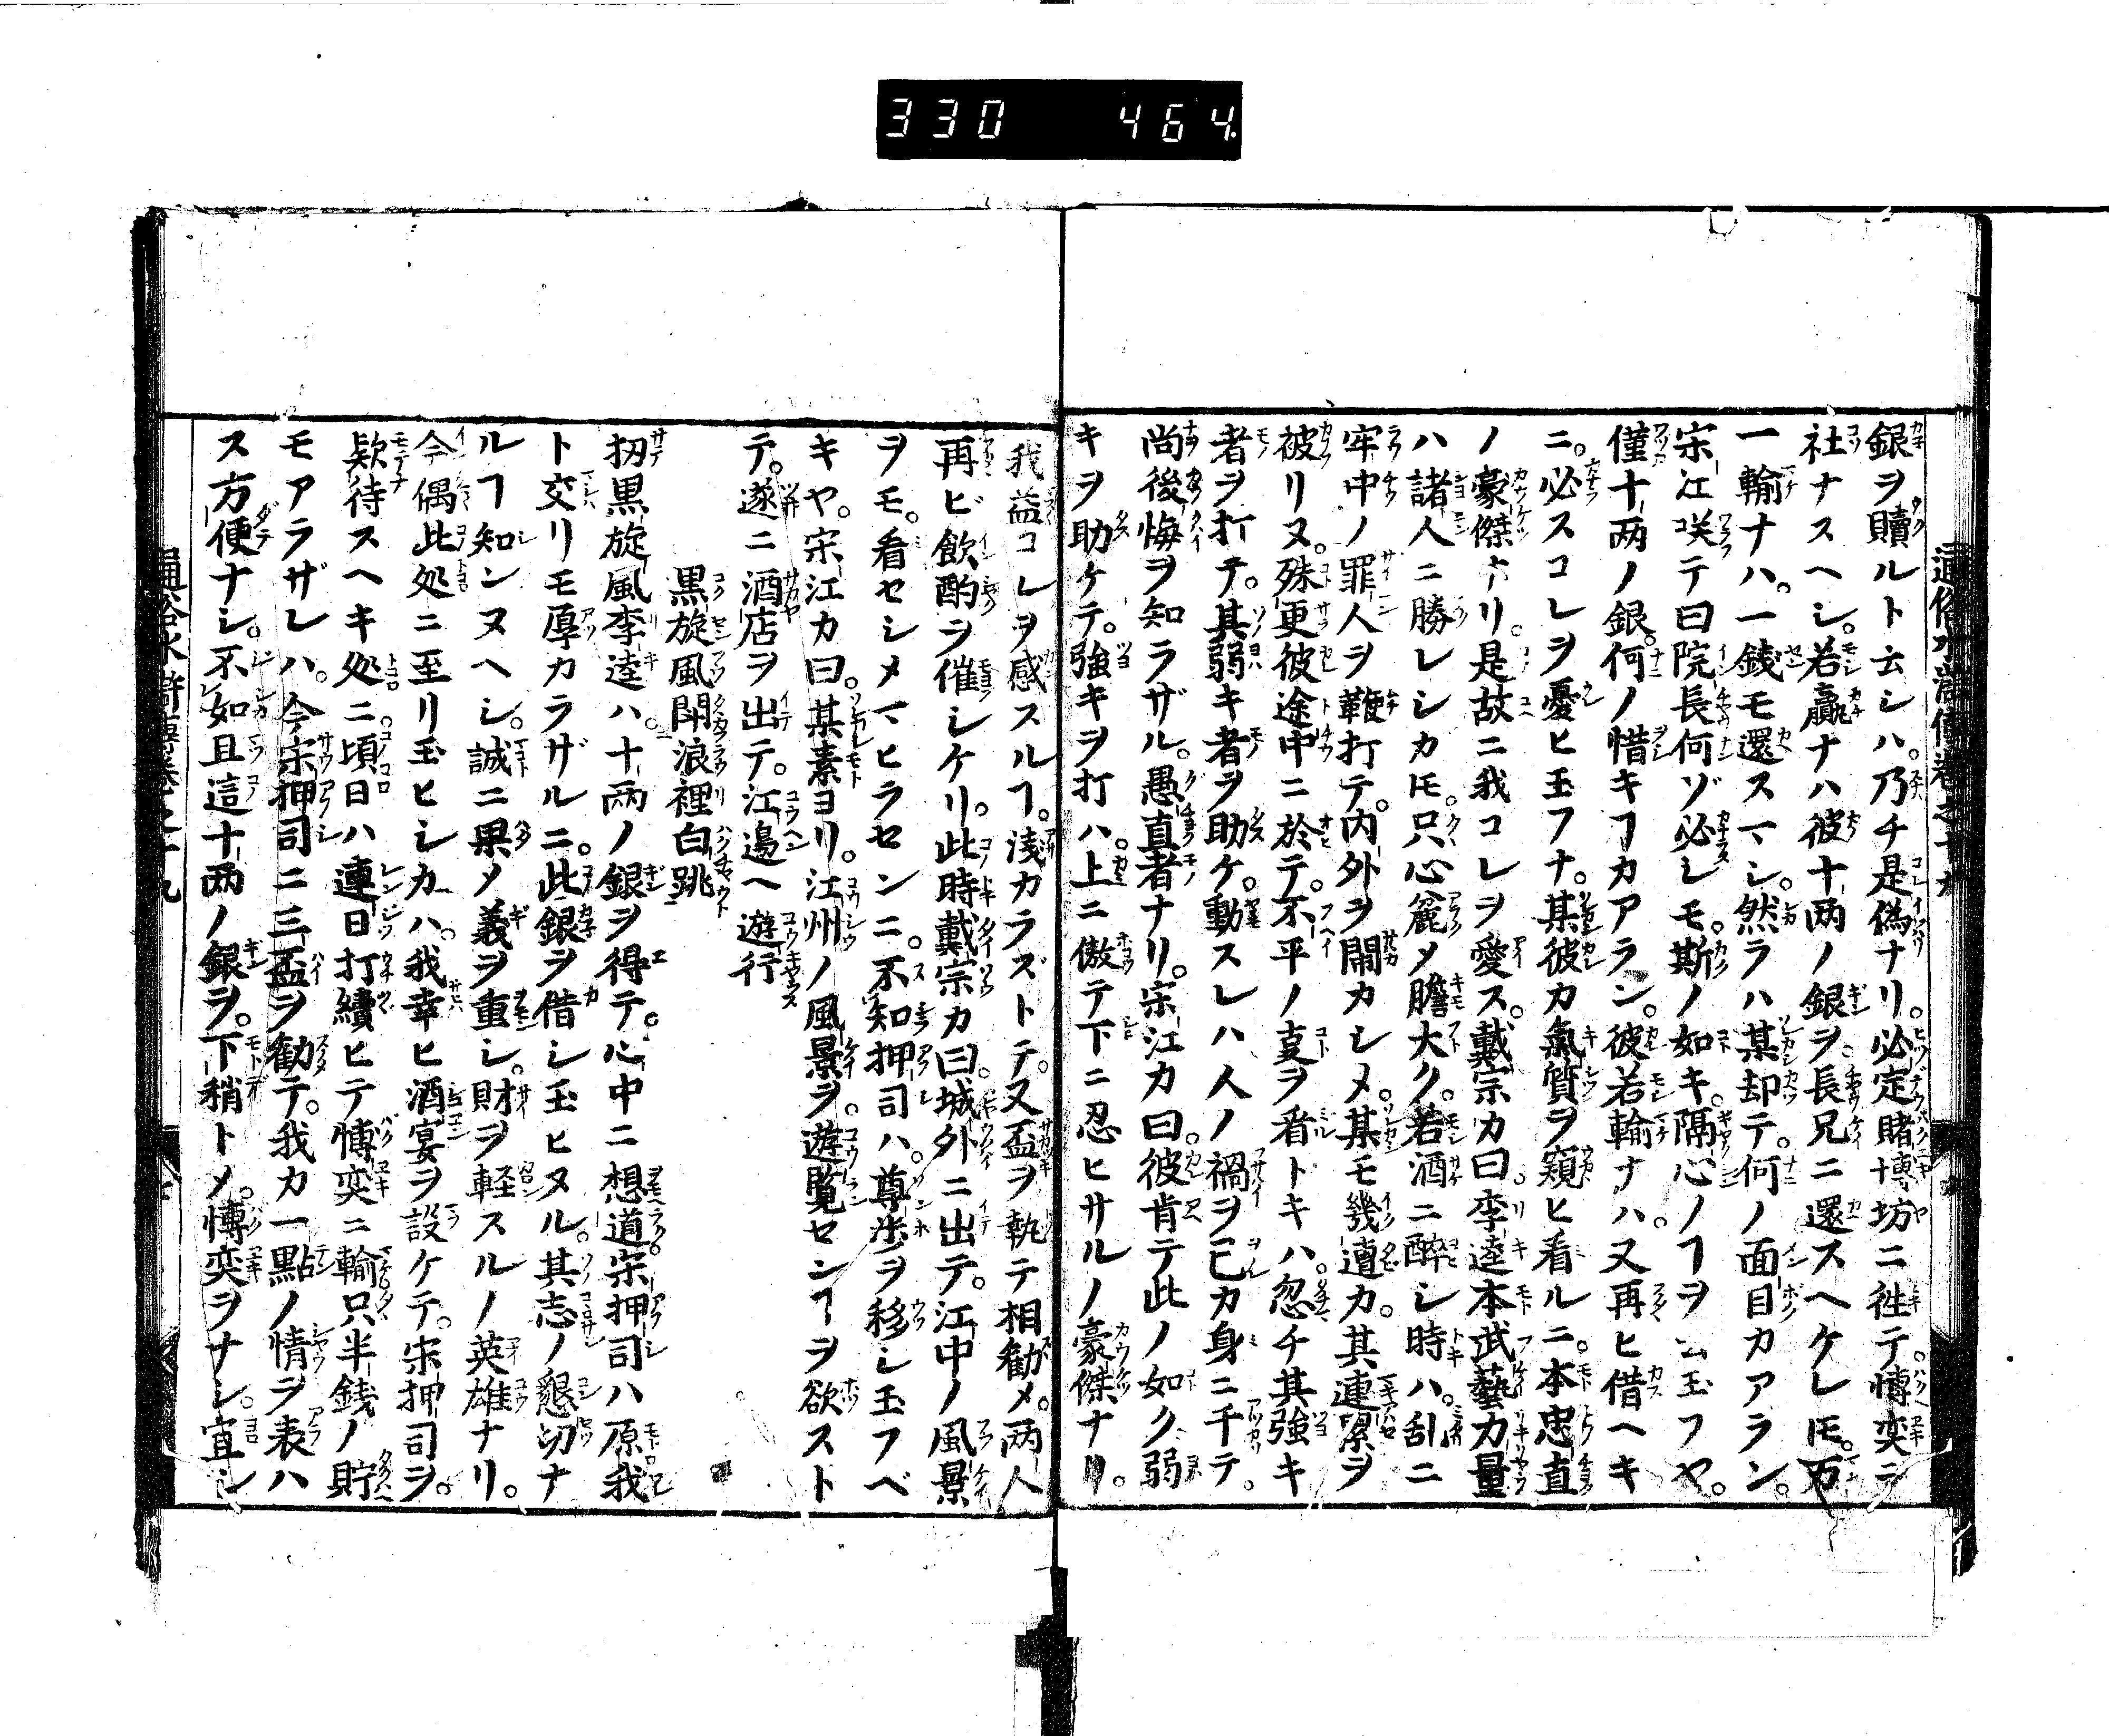 330 464
銀ヲ贖ルト云シハ。乃チ是偽ナリ。必定賭博坊ニ徃テ。愽奕ニ
社ナスヘシ。若贏ナハ彼十両ノ銀ヲ。長兄ニ還スヘケレ𪜈。万
一輸ナハ。一銭モ還スマシ。然ラハ某却テ。何ノ面目カアラン。
宋江咲テ曰院長何ゾ必シモ。斯ノ如キ。隔心ノヿヲ云玉フヤ。
僅十両ノ銀。何ノ惜キヿカアラン。彼若輸ナハ。又再ヒ借ヘキ
ニ。必スコレヲ憂ヒ玉フナ。某彼カ氣質ヲ窺ヒ看ルニ。本忠直
ノ豪傑ナリ。是故ニ我コレヲ愛ス。戴宗カ曰。李逵本武藝力量
ハ諸人ニ勝レシカ𪜈。只心麁メ膽大ク。若酒ニ醉シ時ハ。乱ニ
牢中ノ罪人ヲ鞭打テ。内外ヲ閙カシメ。某モ幾遭カ。其連累ヲ
被リヌ。殊更彼途中ニ於テ。不平ノ㕝ヲ看トキハ。忽チ其強キ
者ヲ打チ。其弱キ者ヲ助ケ。動スレハ人ノ禍ヲ己カ身ニ干テ。
尚後悔ヲ知ラザル。愚直者ナリ。宋江カ曰。彼肯テ此ノ如ク弱
キヲ助ケテ。強キヲ打ハ。上ニ傲テ下ニ忍ヒサルノ豪傑ナリ。
我益コレヲ感スルヿ。淺カラズトテ。又盃ヲ執テ相勸メ。両人
再ビ飲酌ヲ催シケリ。此時戴宗カ曰。城外ニ出テ。江中ノ風景
ヲモ。看セシメマヒラセンニ。不知押司ハ。尊歩ヲ移シ玉フベ
キヤ。宋江カ曰。某素ヨリ。江州ノ風景ヲ。遊覧センヿヲ欲スト
テ。遂ニ酒店ヲ出テ。江邉ヘ遊行
黒旋風閗浪裡白跳
扨黒旋風李逵ハ。十両ノ銀ヲ得テ。心中ニ想道宋押司ハ原我
ト交リモ厚カラザルニ。此銀ヲ借シ玉ヒヌル。其志ノ懇切ナ
ルヿ知ンヌヘシ。誠ニ果メ義ヲ重シ。財ヲ軽スルノ英雄ナリ。
今偶此処ニ至リ玉ヒシカハ。我幸ヒ酒宴ヲ設ケテ。宋押司ヲ。
欵待スヘキ処ニ。頃日ハ連日打續ヒテ愽奕ニ輸只半銭ノ貯
モアラザレハ。今宋押司ニ三盃ヲ勧テ。我カ一點ノ情ヲ表ハ
ス方便ナシ。不如且這十两ノ銀ヲ。下稍トメ。愽奕ヲナシ。宜シ